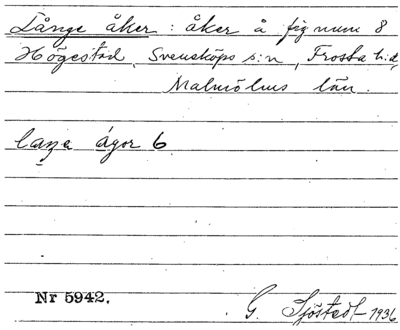 Långe åker : åker å fig num 8
Högestad, Svensköps s:n, Frosta h:d,
Malmöhus län.
laŋa ágor 6
Nr 5942.
G. Sjöstedt 1936